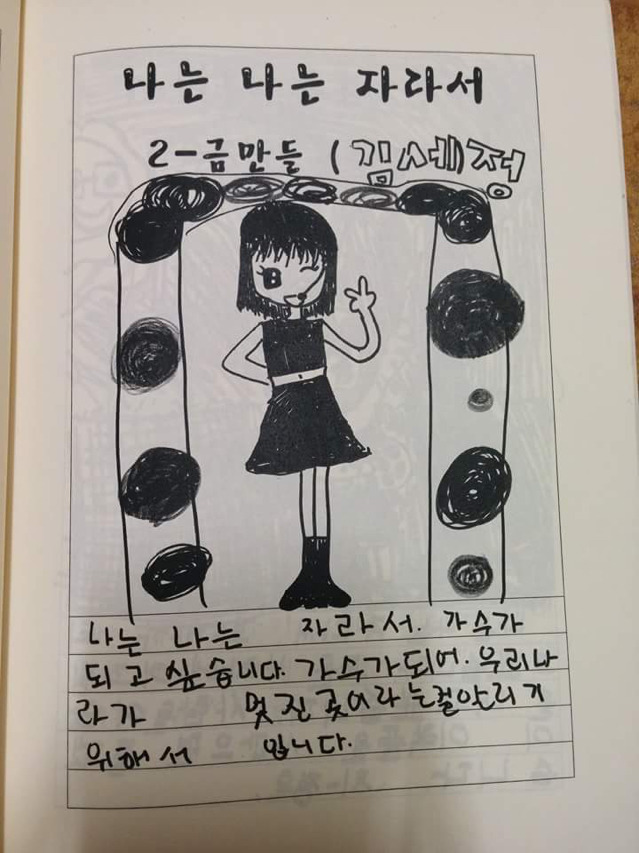 나는 나는 자라서
2-금만들 (김세정)
나는 나는 자라서. 가수가
되고 싶습니다. 가수가되어. 우리나
라가 멋진곳이라는걸알리기
위해서 입니다.